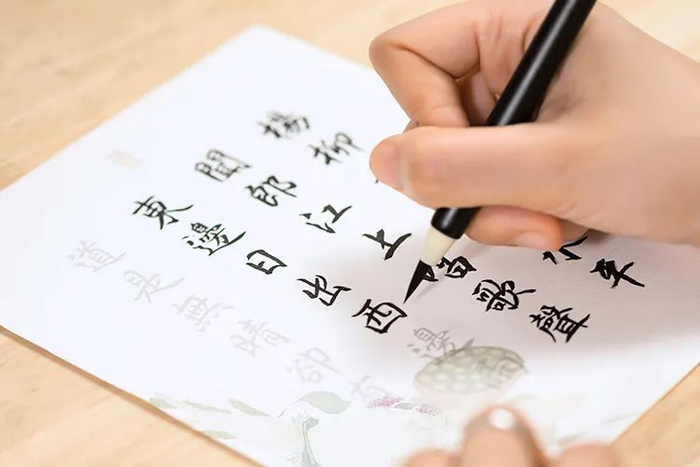 楊柳平
聞郎江上歌聲
東邊日出西邊
道是無晴卻有